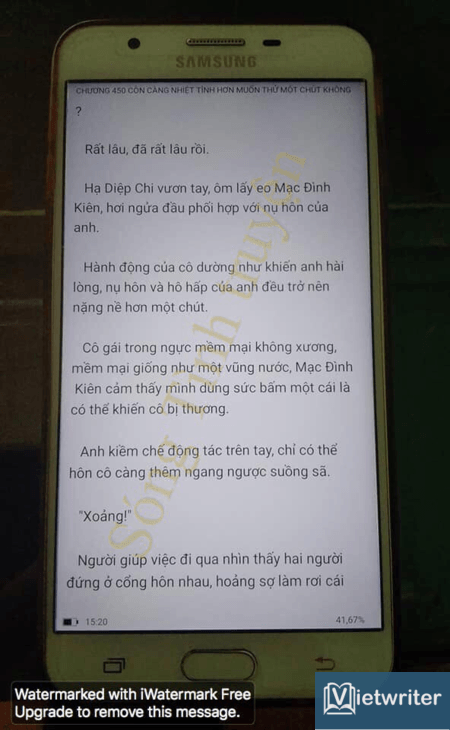 SAMSUNG
CHƯƠNG 450 CÒN CÀNG NHIỆT TÌNH HƠN MUỐN THỬ MỘT CHÚT KHÔNG
?
Rất lâu, đã rất lâu rồi.
Hạ Diệp Chi vươn tay, ôm lấy eo Mạc Đình
Kiên, hơi ngửa đầu phối hợp với nụ hôn của
anh.
Hành động của cô dường như khiến anh hài
lòng, nụ hôn và hô hấp của anh đều trở nên
nặng nề hơn một chút.
Cô gái trong ngực mềm mại không xương,
mềm mại giống như một vũng nước, Mạc Đình
Kiên cảm thấy mình dùng sức bấm một cái là
có thể khiến cô bị thương.
Anh kiềm chế động tác trên tay, chỉ có thể
hôn cô càng thêm ngang ngược suồng sã.
"Xoảng!"
Người giúp việc đi qua nhìn thấy hai người
đứng ở cổng hôn nhau, hoảng sợ làm rơi cái
15:20
41,67%
Sóng Tình truyện
Watermarked with iWatermark Free
Upgrade to remove this message.
Vietwriter